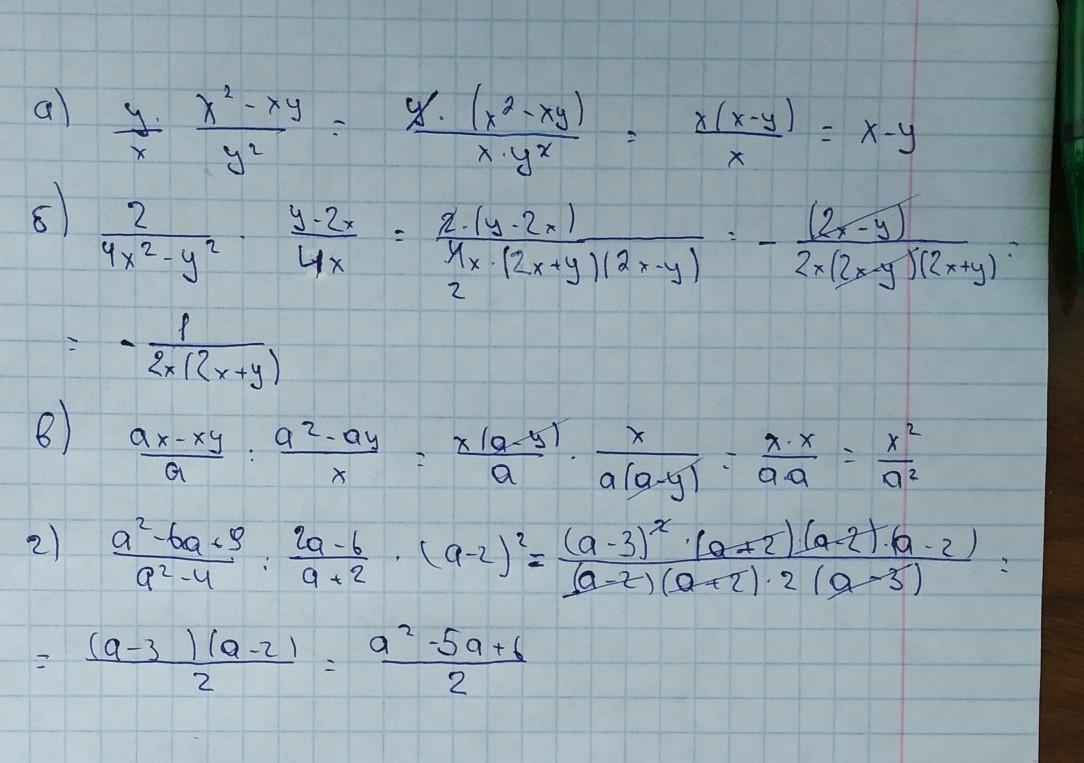 а) y/x · (x² - xy)/y² = (y · (x² - xy))/(x · y²) = x(x-y)/x = x-y
б) 2/(4x² - y²) · (y-2x)/4x = (2·(y-2x))/(4x·(2x+y)(2x-y)) = - (2x-y)/(2x(2x-y)(2x+y)) =
2
= - 1/(2x(2x+y))
в) (ax-xy)/a : (a²-ay)/x = x(a-y)/a · x/(a(a-y)) = x·x/a·a = x²/a²
г) (a²-6a+9)/(a²-4) : (2a-6)/(a+2) · (a-2)² = ((a-3)²·(a+2)·(a-2)·(a-2))/((a-2)(a+2)·2(a-3)) =
= (a-3)(a-2)/2 = (a²-5a+6)/2